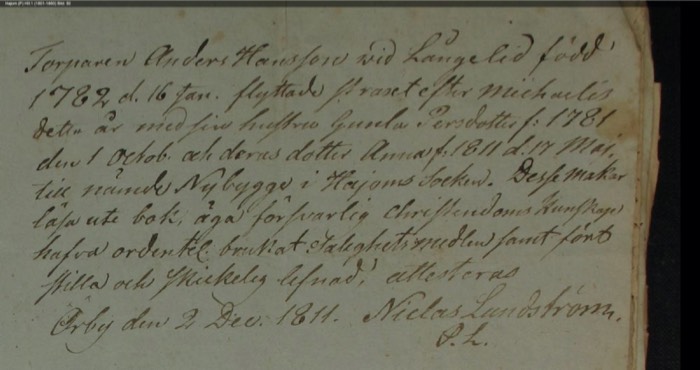 Torparen Anders Hansson wid Långelid född
1782 d. 16 Jan. flyttade straxt efter Michaelis
detta år med sin hustru Gunla Persdotter f: 1781
den 1 Octob. och deras dotter Anna f. 1811 d. 17 Maj.
till nämde Nybygge i Hajoms Socken. Desse makar
läsa ute bok, äga försvarlig Christendoms Kunskap
hafva ordentel. brukat Salighetsmedlen samt fört
stilla och skickelig lefnad, attesteras
Örby den 2 Dec. 1811. Niclas Lundström.
P. L.